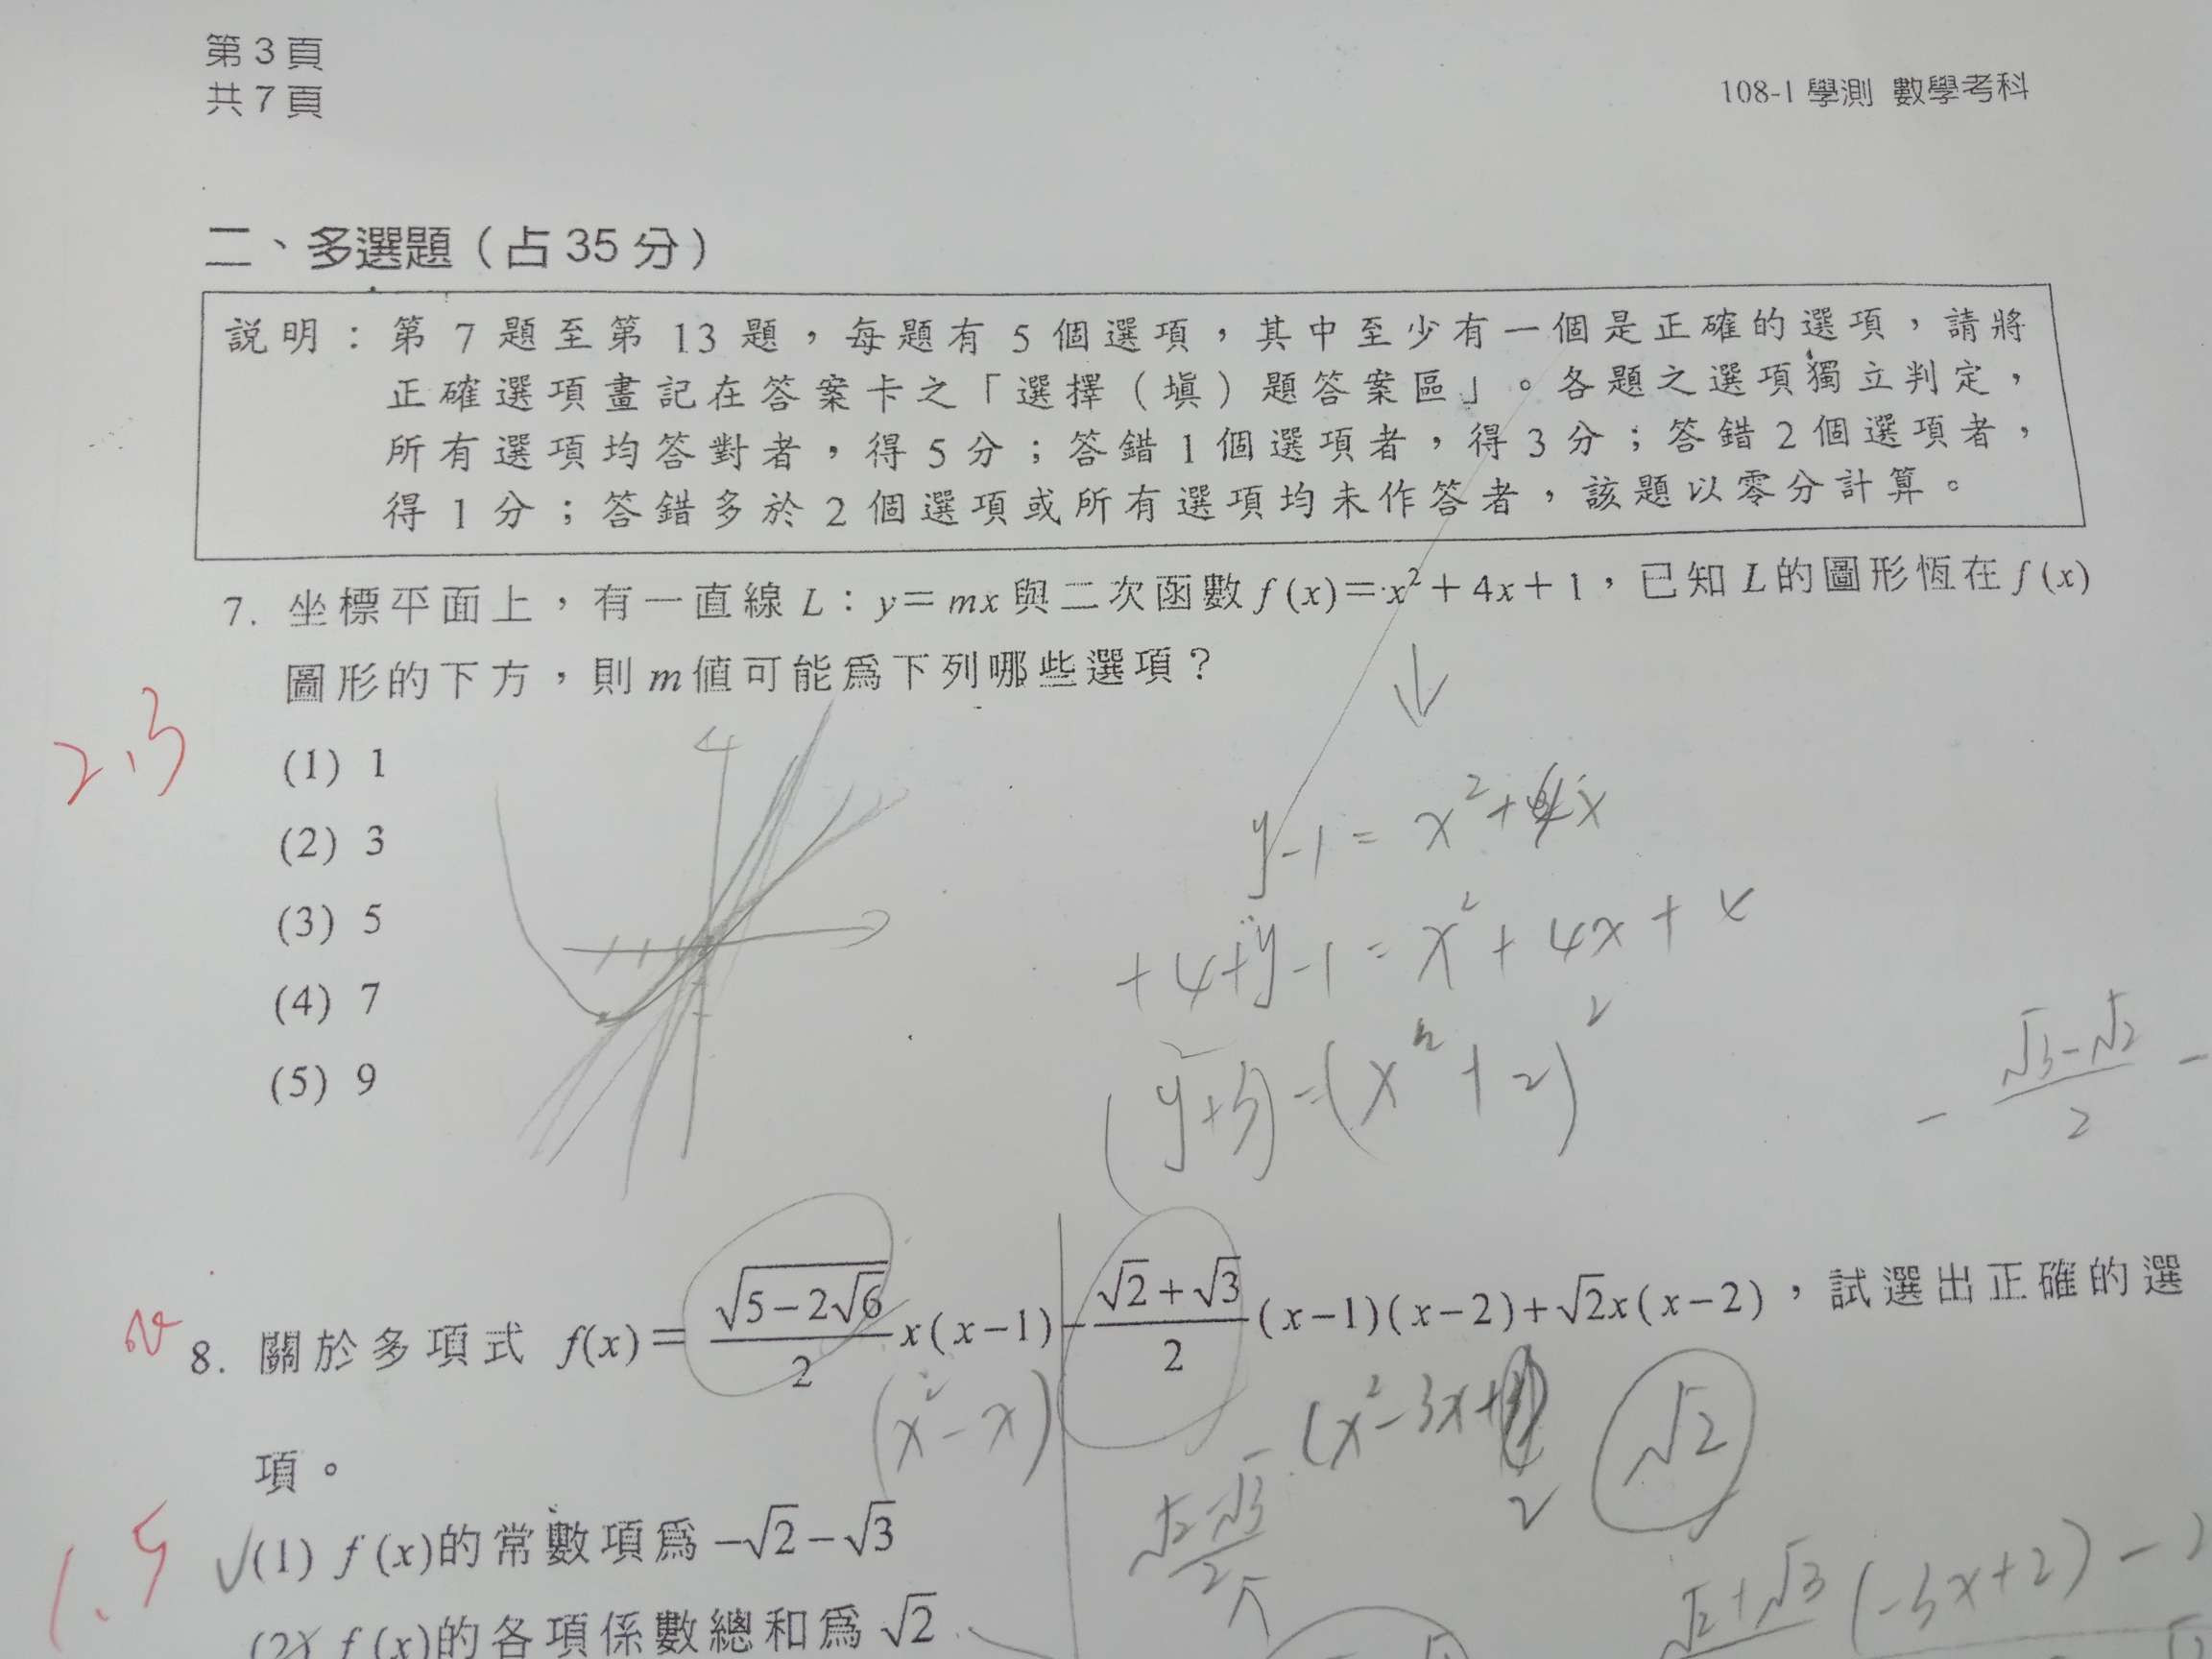 第3頁
共7頁
108-1 學測 數學考科
二、多選題（占35分）
說明：第7題至第13題，每題有5個選項，其中至少有一個是正確的選項，請將
正確選項畫記在答案卡之「選擇（填）題答案區」。各題之選項獨立判定，
所有選項均答對者，得5分；答錯1個選項者，得3分；答錯2個選項者，
得1分；答錯多於2個選項或所有選項均未作答者，該題以零分計算。
7. 坐標平面上，有一直線 L：y＝mx 與二次函數 f(x)＝x²＋4x＋1，已知 L 的圖形恆在 f(x)
圖形的下方，則 m 值可能為下列哪些選項？
2,3
(1) 1
(2) 3
(3) 5
(4) 7
(5) 9
y-1 = x²+4x
+4+y-1 = x²+4x+4
(y+3) = (x+2)²
- (√3-√2)/2 -
8. 關於多項式 f(x)＝(√(5−2√6))/2 x(x−1)−(√2+√3)/2 (x−1)(x−2)+√2x(x−2)，試選出正確的選
(x²-x)
-(x²-3x+2)
2
√2
項。
1.5
√(1) f(x)的常數項為 −√2−√3
(√2+√3)/2 (-3x+2) -
(2) f(x)的各項係數總和為 √2